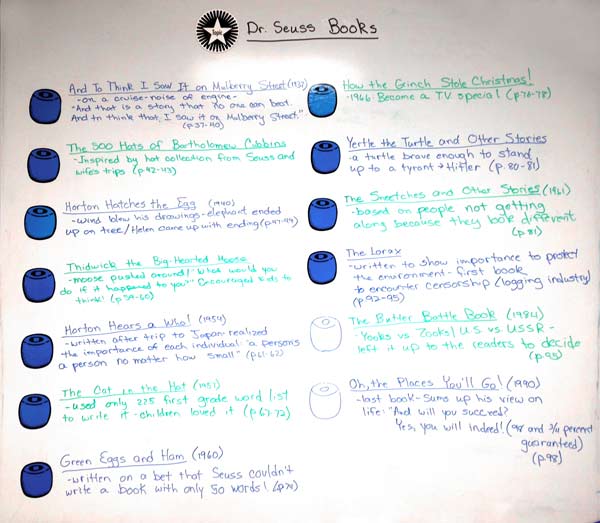 Topic
Dr. Seuss Books
And To Think I Saw It on Mulberry Street (1937)
-on a cruise-noise of engine-
"And that is a story that no one can beat.
And to think that I saw it on Mulberry Street."
(p.37-40)
The 500 Hats of Bartholomew Cubbins
-Inspired by hat collection from Seuss and
wife's trips (p.42-43)
Horton Hatches the Egg (1940)
-Wind blew his drawings-elephant ended
up on tree/Helen came up with ending (p.47-49)
Thidwick the Big-Hearted Moose
-moose pushed around! "What would you
do if it happened to you?" Encouraged kids to
think! (p.59-60)
Horton Hears a Who! (1954)
-written after trip to Japan-realized
the importance of each individual-"a persons
a person no matter how small" (p.61-62)
The Cat in the Hat (1957)
-used only 225 first grade word list
to write it-children loved it (p.67-72)
Green Eggs and Ham (1960)
-written on a bet that Seuss couldn't
write a book with only 50 words!
How the Grinch Stole Christmas!
-1966-Became a T.V. special! (p.76-78)
Yertle the Turtle and Other Stories
-a turtle brave enough to stand
up to a tyrant → Hitler (p.80-81)
The Sneetches and Other Stories (1961)
-based on people not getting
along because they look different
(p.81)
The Lorax
-written to show importance to protect
the environment-first book
to encounter censorship (logging industry)
(p.92-95)
The Butter Battle Book (1984)
-Yooks vs Zooks/US vs USSR-
left it up to the readers to decide
(p.95)
Oh, the Places You'll Go! (1990)
-last book-Sums up his view on
life: "And will you succeed?
Yes, you will indeed! (98 and 3/4 percent
guaranteed)
(p.98)